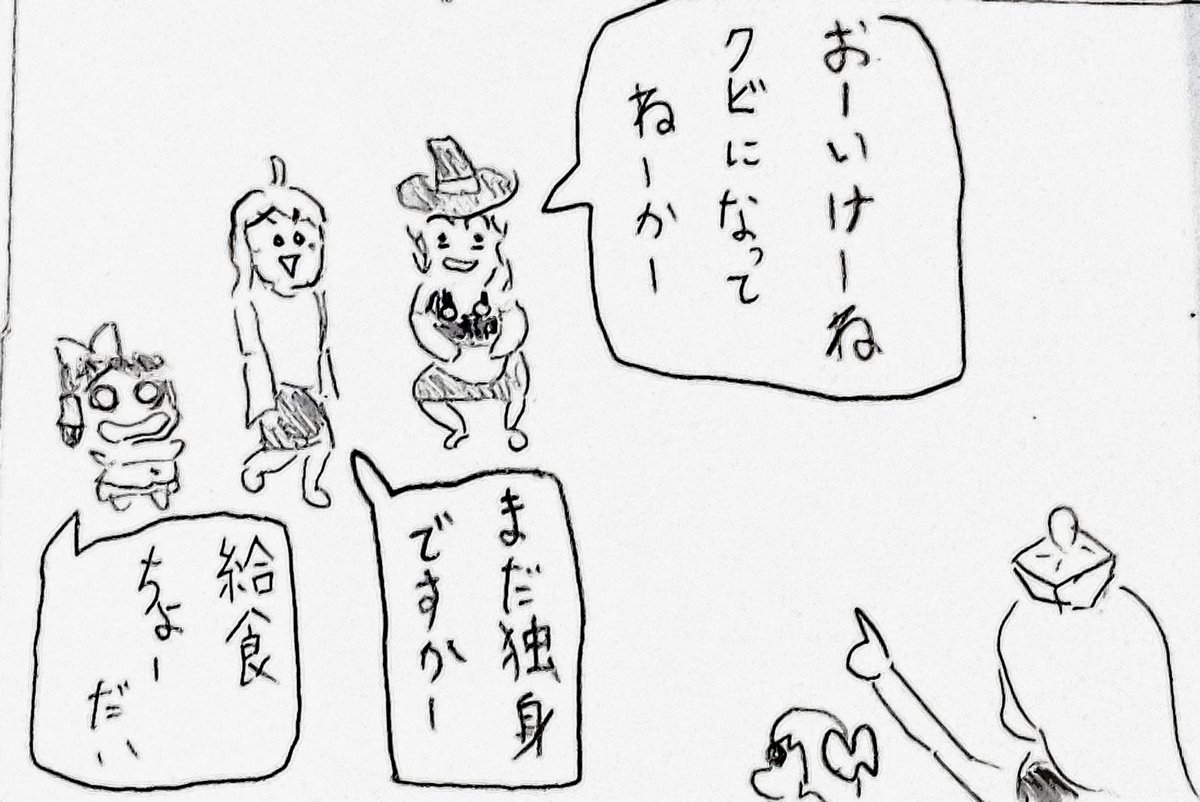 おーいけーね
クビになって
ねーかー
まだ独身
ですかー
給食
ちょー
だい